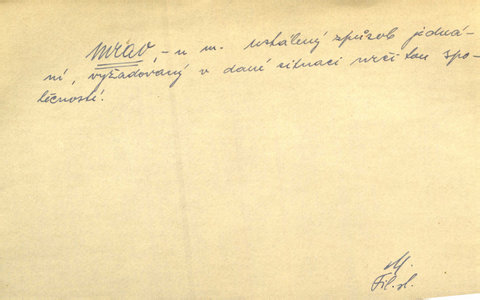 mrav, -u m. ustálený způsob jedná-
ní, vyžadovaný v dané situaci určitou spo-
lečností.
M.
Fil. sl.